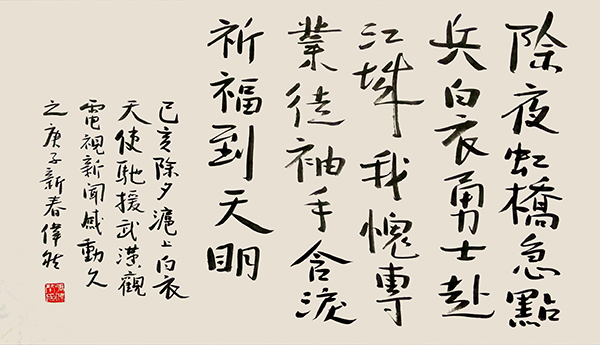 除夜虹橋急點
兵白衣勇士赴
江城我愧專
業徒袖手含淚
祈福到天明
己亥除夕滬上白衣
天使馳援武漢觀
電視新聞感動久
之庚子新春偉